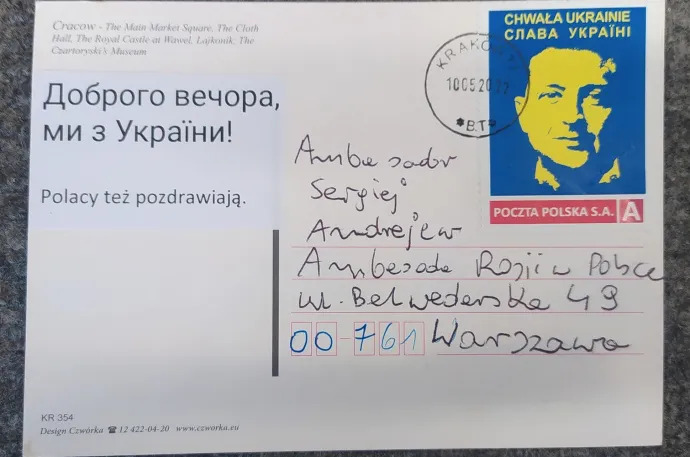 Cracow - The Main Market Square, The Cloth
Hall, The Royal Castle at Wawel, Lajkonik, The
Czartoryski's Museum
Доброго вечора,
ми з України!
Polacy też pozdrawiają.
CHWAŁA UKRAINIE
СЛАВА УКРАЇНІ
POCZTA POLSKA S.A. A
KRAKÓW
10052022
*BT*
Ambasador
Sergiej
Andrejew
Ambasada Rosji w Polsce
ul. Belwederska 49
00-761 Warszawa
KR 354
Design Czwórka ☎ 12 422-04-20 www.czworka.eu